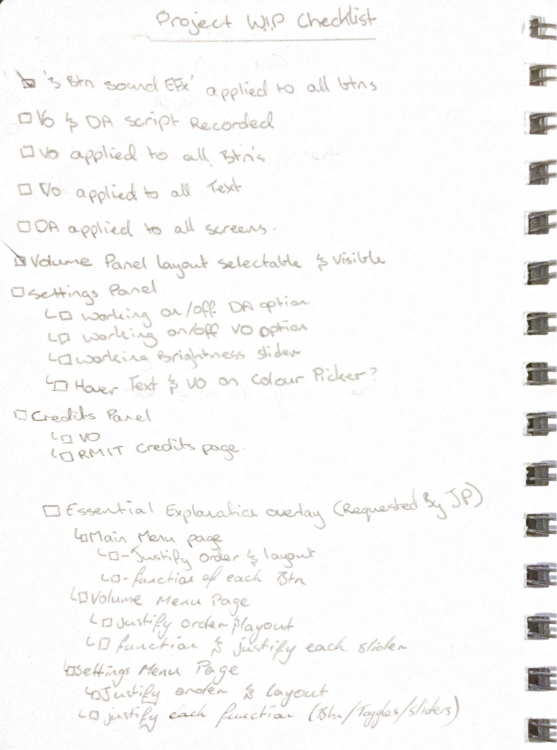 Project WIP Checklist
'3 Btn sound EFx' applied to all btns
VO & DA script Recorded
VO applied to all Btn's
VO applied to all Text
DA applied to all screens.
Volume Panel layout selectable & Visible
Settings Panel
working on/off DA option
working on/off VO option
working Brightness slider
Hover Text & VO on Colour Picker?
Credits Panel
VO
RMIT Credits page.
Essential Explanation overlay (Requested By JP)
Main Menu page
- Justify order & layout
- function of each Btn
Volume Menu Page
justify order/layout
function & justify each slider
Settings Menu Page
Justify order & layout
justify each function (Btn/Toggles/sliders)